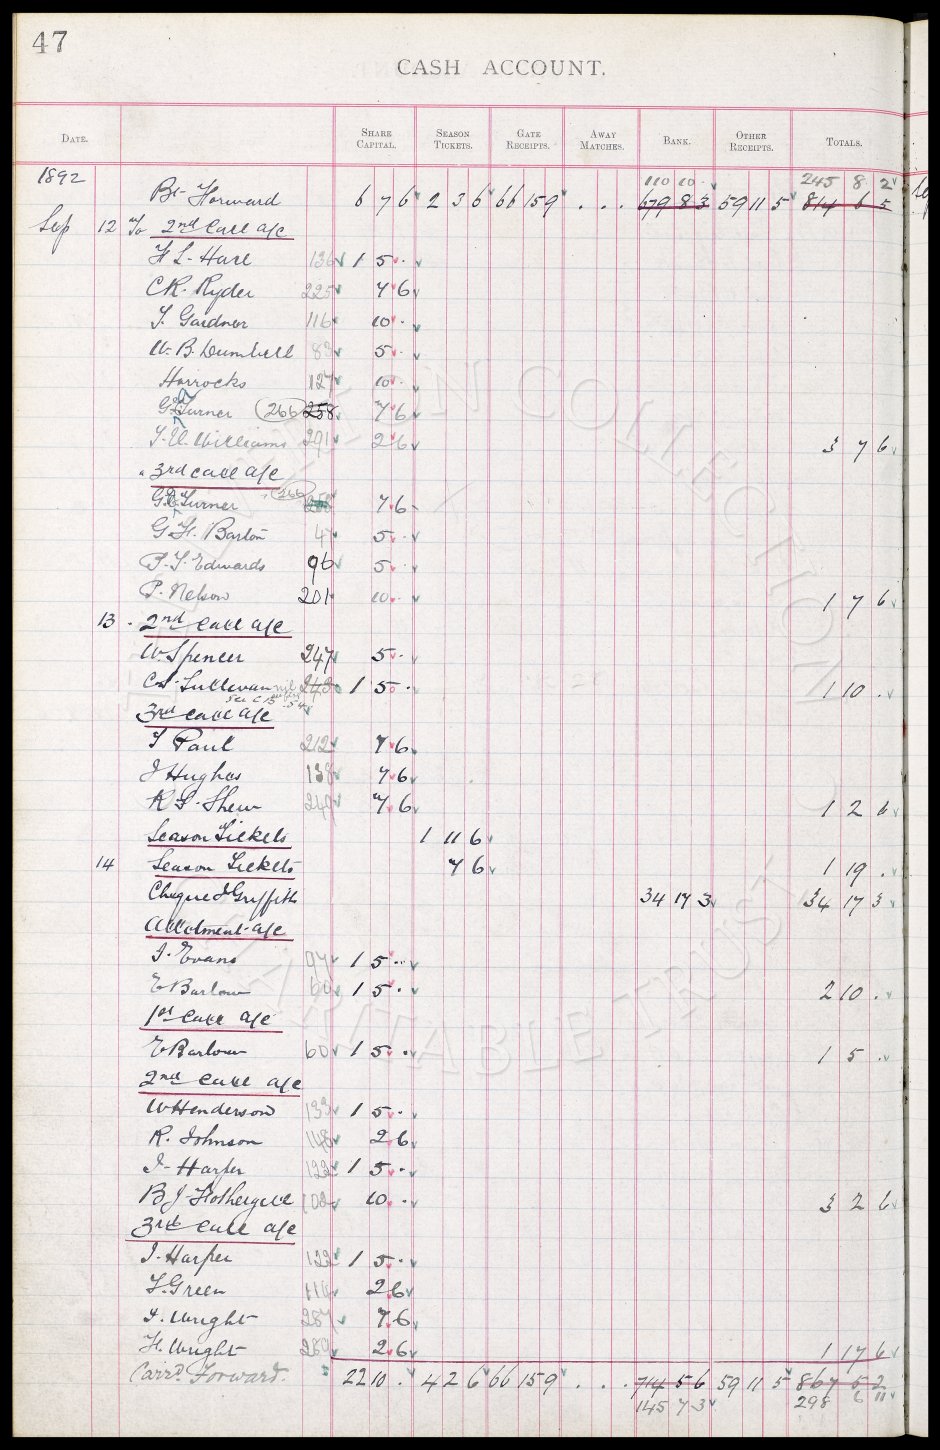 47
CASH ACCOUNT.
DATE. SHARE CAPITAL. SEASON TICKETS. GATE RECEIPTS. AWAY MATCHES. BANK. OTHER RECEIPTS. TOTALS.
1892 110 10 . 245 8 2
Bt Forward 6 7 6 2 3 6 66 15 9 . . . 679 8 3 59 11 5 814 6 5
Sep 12 To 2nd Call a/c
H L. Hare 136 1 5 .
C R. Ryder 225 7 6
T. Gardner 116 10 .
W. B. Dumbell 83 5 .
Horrocks 127 10 .
G. Turner 266 258 7 6
T. U. Williams 291 2 6 3 7 6
" 3rd call a/c
G. Turner 266 7 6
G H. Barton 4 5 .
P. T. Edwards 96 5 .
P. Nelson 201 10 . 1 7 6
13 2nd Call a/c
W. Spencer 247 5 .
C S. Sullivan 243 1 5 . 1 10 .
3rd call a/c
T Paul 212 7 6
J Hughes 138 7 6
R L. Shew 240 7 6 1 2 6
Season Tickets 1 11 6
14 Season Tickets 7 6 1 19 .
Cheque J Griffiths 34 17 3 34 17 3
Allotment a/c
J. Evans 97 1 5 .
E Barlow 60 1 5 . 2 10 .
1st Call a/c
E Barlow 60 1 5 . 1 5 .
2nd Call a/c
W Henderson 133 1 5 .
R. Johnson 148 2 6
J. Harper 122 1 5 .
B J. Fothergill 102 10 . 3 2 6
3rd Call a/c
J. Harper 122 1 5 .
T. Green 118 2 6
J. Wright 287 7 6
H. Wright 280 2 6 1 17 6
Carrd. Forward. 22 10 . 4 2 6 66 15 9 . . . 714 5 6 59 11 5 867 5 2
145 7 3 298 6 11